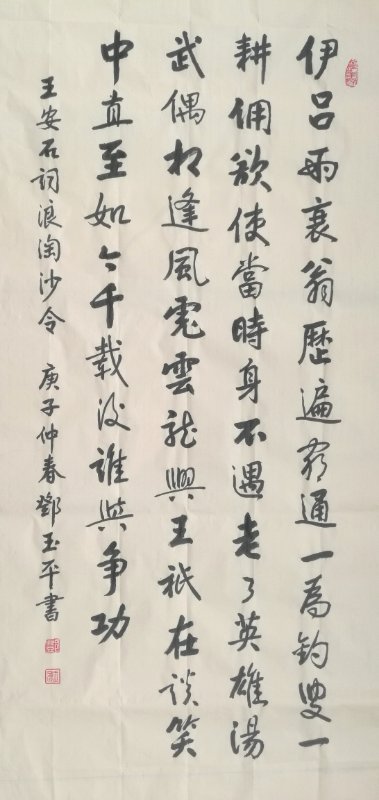 伊呂兩衰翁歷遍窮通一為釣叟一
耕佣欲使當時身不遇老了英雄湯
武偶相逢風虎雲龍興王祇在談笑
中直至如今千載後誰與争功
王安石詞浪淘沙令 庚子仲春鄧玉平書